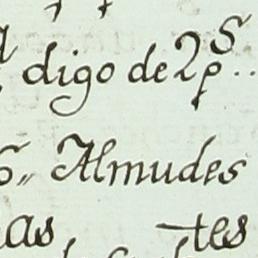 digo de 2 p.s ..
6,, Almudes
as, tes